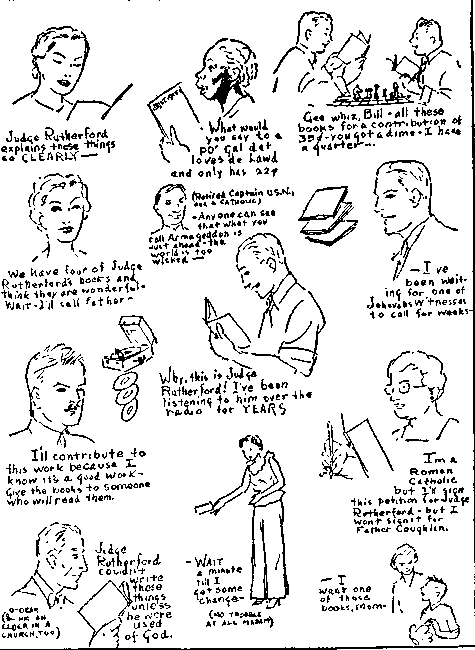 Judge Rutherford
explains these things
so CLEARLY—
- What would
you say to a
po' gal dat
loves de Lawd
and only has 22¢
Gee whiz, Bill - all these
books for a contribution of
35¢ - you got a dime - I have
a quarter...
We have four of Judge
Rutherford's books and
think they are wonderful -
Wait - I'll call father -
(Retired Captain U.S.N.,
and a CATHOLIC)
- Anyone can see
that what you
call Armageddon is
just ahead - the
world is too
wicked —
— I've
been wait-
ing for one of
Jehovah's witnesses
to call for weeks -
Why, this is Judge
Rutherford! I've been
listening to him over the
radio for YEARS
I'll contribute to
this work because I
know it's a good work -
Give the books to someone
who will read them.
I'm a
Roman
Catholic
but I'll sign
this petition for Judge
Rutherford - but I
won't sign it for
Father Coughlin.
Judge
Rutherford
couldn't
write
these
things
unless
he were
used
of God.
(& he an
ELDER IN A
CHURCH, TOO)
- WAIT
a minute
till I
get some
change -
(NO TROUBLE
AT ALL MADAM)
- I
want one
of those
books, mom -